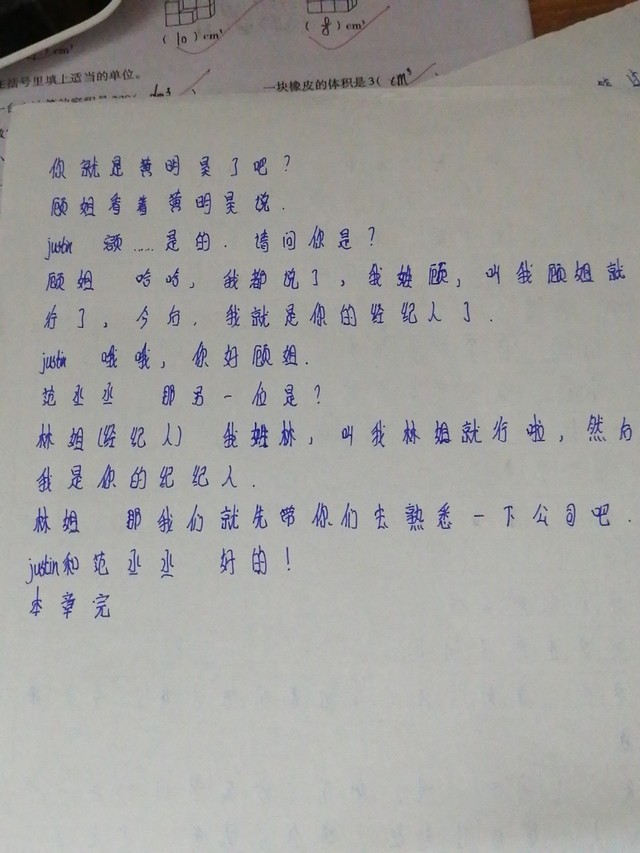 (10)cm³
(8)cm³
在括号里填上适当的单位。
一块橡皮的体积是3(cm³
dm³
你就是黄明昊了吧?
顾姐看着黄明昊说.
justin 额……是的.请问你是?
顾姐 哈哈,我都说了,我姓顾,叫我顾姐就
行了,今后.我就是你的经纪人了.
justin 哦哦,你好顾姐.
范丞丞 那另一位是?
林姐(经纪人) 我姓林,叫我林姐就行啦,然后
我是你的纪纪人.
林姐 那我们就先带你们去熟悉一下公司吧.
justin和范丞丞 好的!
本章完